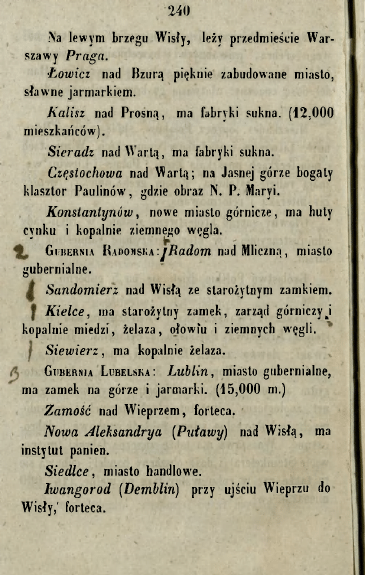 240
Na lewym brzegu Wisły, leży przedmieście War-
szawy Praga.
Łowicz nad Bzurą pięknie zabudowane miasto,
sławne jarmarkiem.
Kalisz nad Prosną, ma fabryki sukna. (12,000
mieszkańców).
Sieradz nad Wartą, ma fabryki sukna.
Częstochowa nad Wartą; na Jasnej górze bogaty
klasztor Paulinów, gdzie obraz N. P. Maryi.
Konstantynów, nowe miasto górnicze, ma huty
cynku i kopalnie ziemnego węgla.
2 GUBERNIA RADOMSKA: Radom nad Mliczną, miasto
gubernialne.
Sandomierz nad Wisłą ze starożytnym zamkiem.
Kielce, ma starożytny zamek, zarząd górniczy i
kopalnie miedzi, żelaza, ołowiu i ziemnych węgli.
Siewierz, ma kopalnie żelaza.
3 GUBERNIA LUBELSKA: Lublin, miasto gubernialne,
ma zamek na górze i jarmarki. (15,000 m.)
Zamość nad Wieprzem, forteca.
Nowa Aleksandrya (Puławy) nad Wisłą, ma
instytut panien.
Siedlce, miasto handlowe.
Iwangorod (Demblin) przy ujściu Wieprzu do
Wisły, forteca.